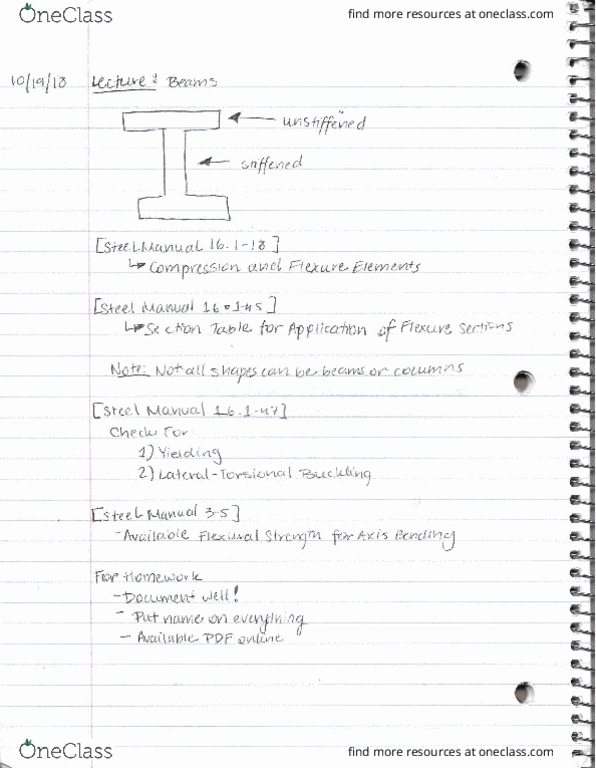 OneClass
find more resources at oneclass.com
10/19/18 Lecture: Beams
unstiffened
stiffened
[Steel Manual 16.1-18]
↳ Compression and Flexure Elements
[Steel Manual 16.1-45]
↳ Section Table for Application of Flexure Sections
Note: Not all shapes can be beams or columns
[Steel Manual 16.1-47]
Check For
1) Yielding
2) Lateral-Torsional Buckling
[Steel Manual 3-5]
- Available Flexural Strength for Axis Bending
For Homework
- Document well!
- Put name on everything
- Available PDF online
OneClass
find more resources at oneclass.com